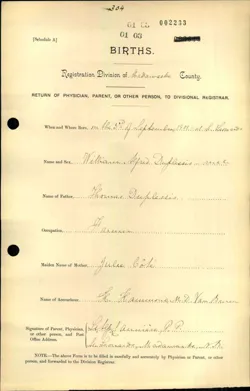 304
01 03 002233
01 03
[Schedule A]
BIRTHS.
Registration Division of Madawaska County.
RETURN OF PHYSICIAN, PARENT, OR OTHER PERSON, TO DIVISIONAL REGISTRAR.
When and Where Born, on the 3rd of September at St.
Name and Sex, William Alfred Duplessis male
Name of Father, Thomas Duplessis
Occupation, Farmer
Maiden Name of Mother, Côté
Name of Accoucheur, Hammond M.D. Van Buren
Signature of Parent, Physician,
or other person, and Post
Office Address.
Madawaska N.B.
NOTE.—The above Form is to be filled in carefully and accurately by Physician, Parent or other person, and
forwarded to the Division Registrar.